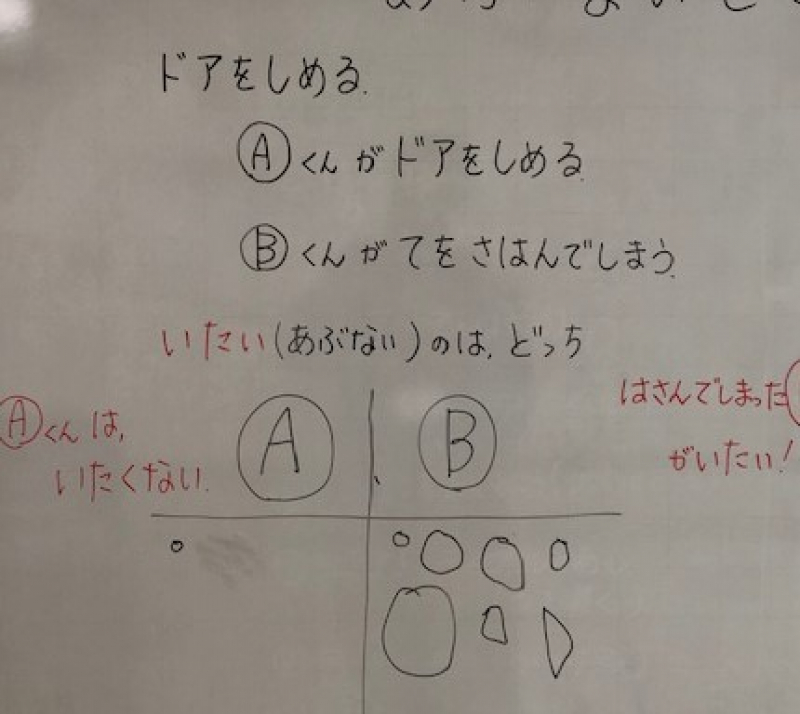 ドアをしめる.
Ⓐくんがドアをしめる.
Ⓑくんがてをさはんでしまう.
いたい(あぶない)のは,どっち
Ⓐくんは,
いたくない.
Ⓐ
Ⓑ
はさんでしまった
がいたい!